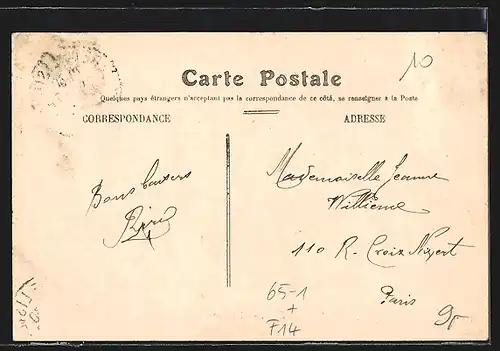 10
Carte Postale
Quelques pays étrangers n'acceptant pas la correspondance de ce côté, se renseigner à la Poste
CORRESPONDANCE
ADRESSE
Bons baisers
Mademoiselle Jeanne
Willieme
110 R. Croix Nivert
Paris
65-1
+
F14